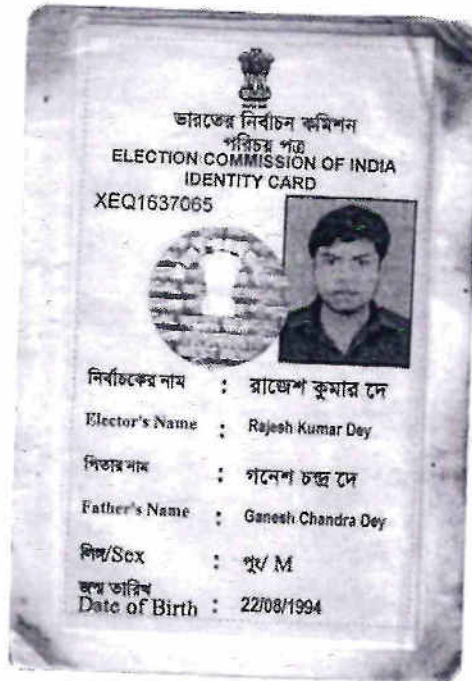 ভারতের নির্বাচন কমিশন
পরিচয় পত্র
ELECTION COMMISSION OF INDIA
IDENTITY CARD
XEQ1637065
নির্বাচকের নাম : রাজেশ কুমার দে
Elector's Name : Rajesh Kumar Dey
পিতার নাম : গনেশ চন্দ্র দে
Father's Name : Ganesh Chandra Dey
লিঙ্গ/Sex : পুং/ M
জন্ম তারিখ
Date of Birth : 22/08/1994